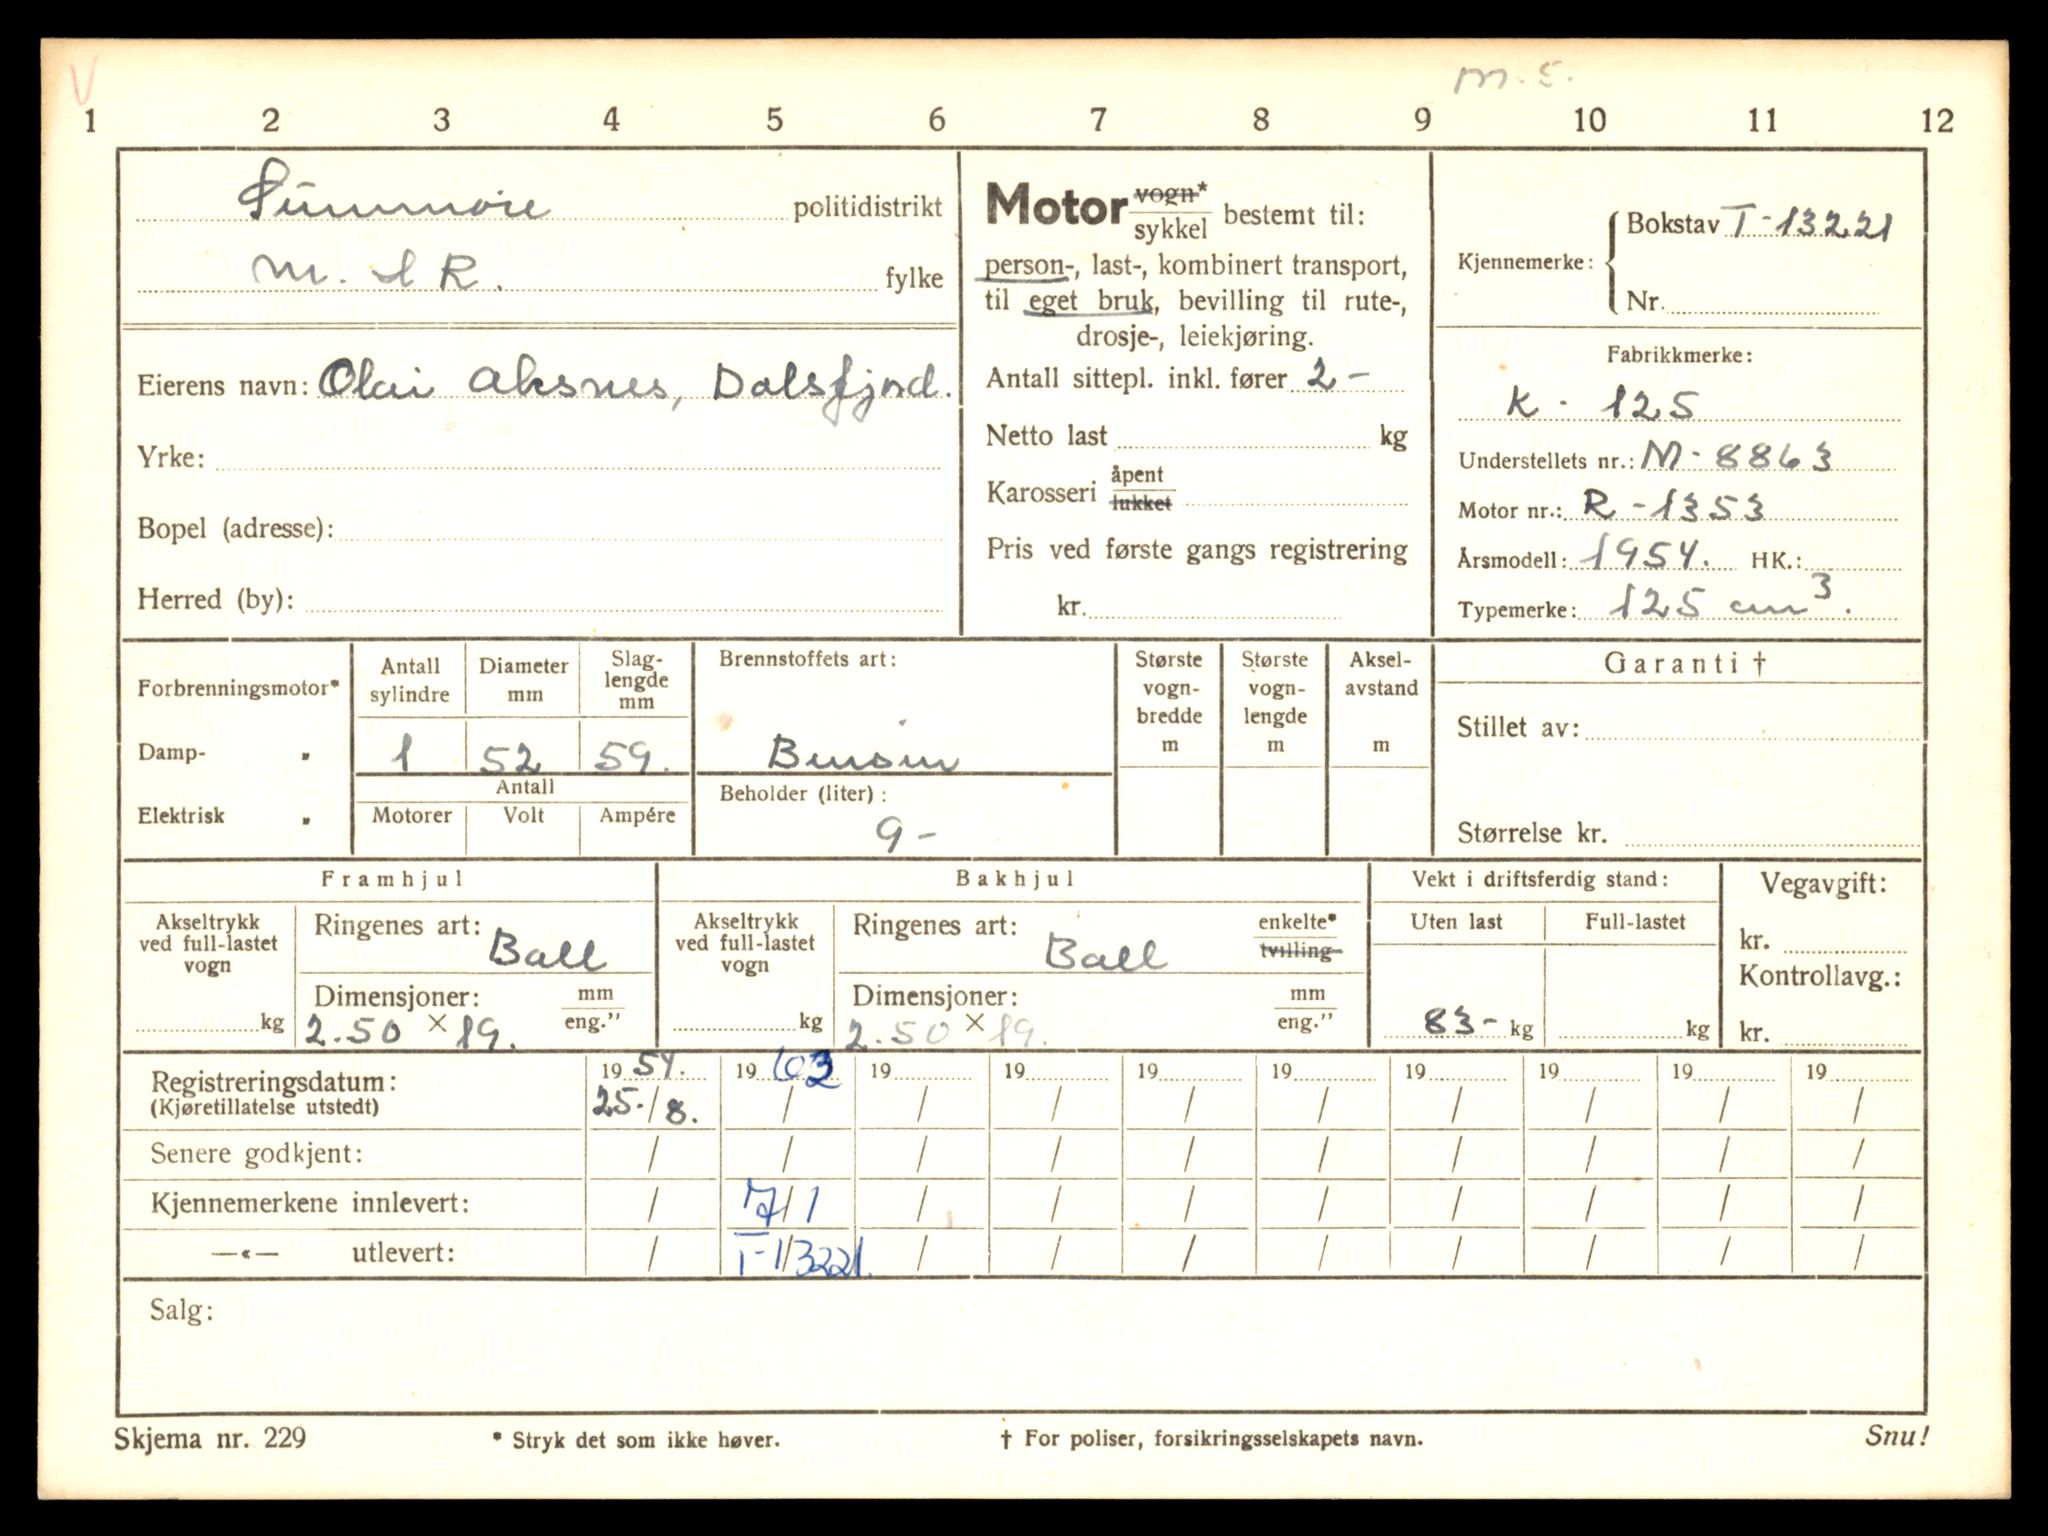 V
M. S.
1 2 3 4 5 6 7 8 9 10 11 12
Sunnmøre politidistrikt
M. & R. fylke
Eierens navn: Olai Aksnes, Dalsfjord.
Yrke:
Bopel (adresse):
Herred (by):
Motor vogn* / sykkel bestemt til:
person-, last-, kombinert transport,
til eget bruk, bevilling til rute-,
drosje-, leiekjøring.
Antall sittepl. inkl. fører 2 -
Netto last kg
Karosseri åpent / lukket
Pris ved første gangs registrering
kr.
Kjennemerke: Bokstav T-13221
Nr.
Fabrikkmerke:
K - 125
Understellets nr.: M-8863
Motor nr.: R-1353
Årsmodell: 1954. HK.:
Typemerke: 125 cm³.
Forbrenningsmotor*
Damp- „
Elektrisk „
Antall sylindre Diameter mm Slag-lengde mm
1 52 59.
Antall
Motorer Volt Ampére
Brennstoffets art:
Bensin
Beholder (liter):
9 -
Største vogn-bredde m
Største vogn-lengde m
Aksel-avstand m
Garanti †
Stillet av:
Størrelse kr.
Framhjul
Akseltrykk ved full-lastet vogn
kg
Ringenes art: Ball
Dimensjoner: mm / eng."
2.50 × 19.
Bakhjul
Akseltrykk ved full-lastet vogn
kg
Ringenes art: Ball enkelte* / tvilling-
Dimensjoner: mm / eng."
2.50 × 19.
Vekt i driftsferdig stand:
Uten last Full-lastet
83 - kg kg
Vegavgift:
kr.
Kontrollavg.:
kr.
Registreringsdatum: 19 54. 19 63 19 19 19 19 19 19 19 19
(Kjøretillatelse utstedt) 25./8. / / / / / / / / /
Senere godkjent: / / / / / / / / / /
Kjennemerkene innlevert: / 7/1 / / / / / / / /
—«— utlevert: / T-13221. / / / / / / / /
Salg:
Skjema nr. 229 * Stryk det som ikke høver. † For poliser, forsikringsselskapets navn. Snu!